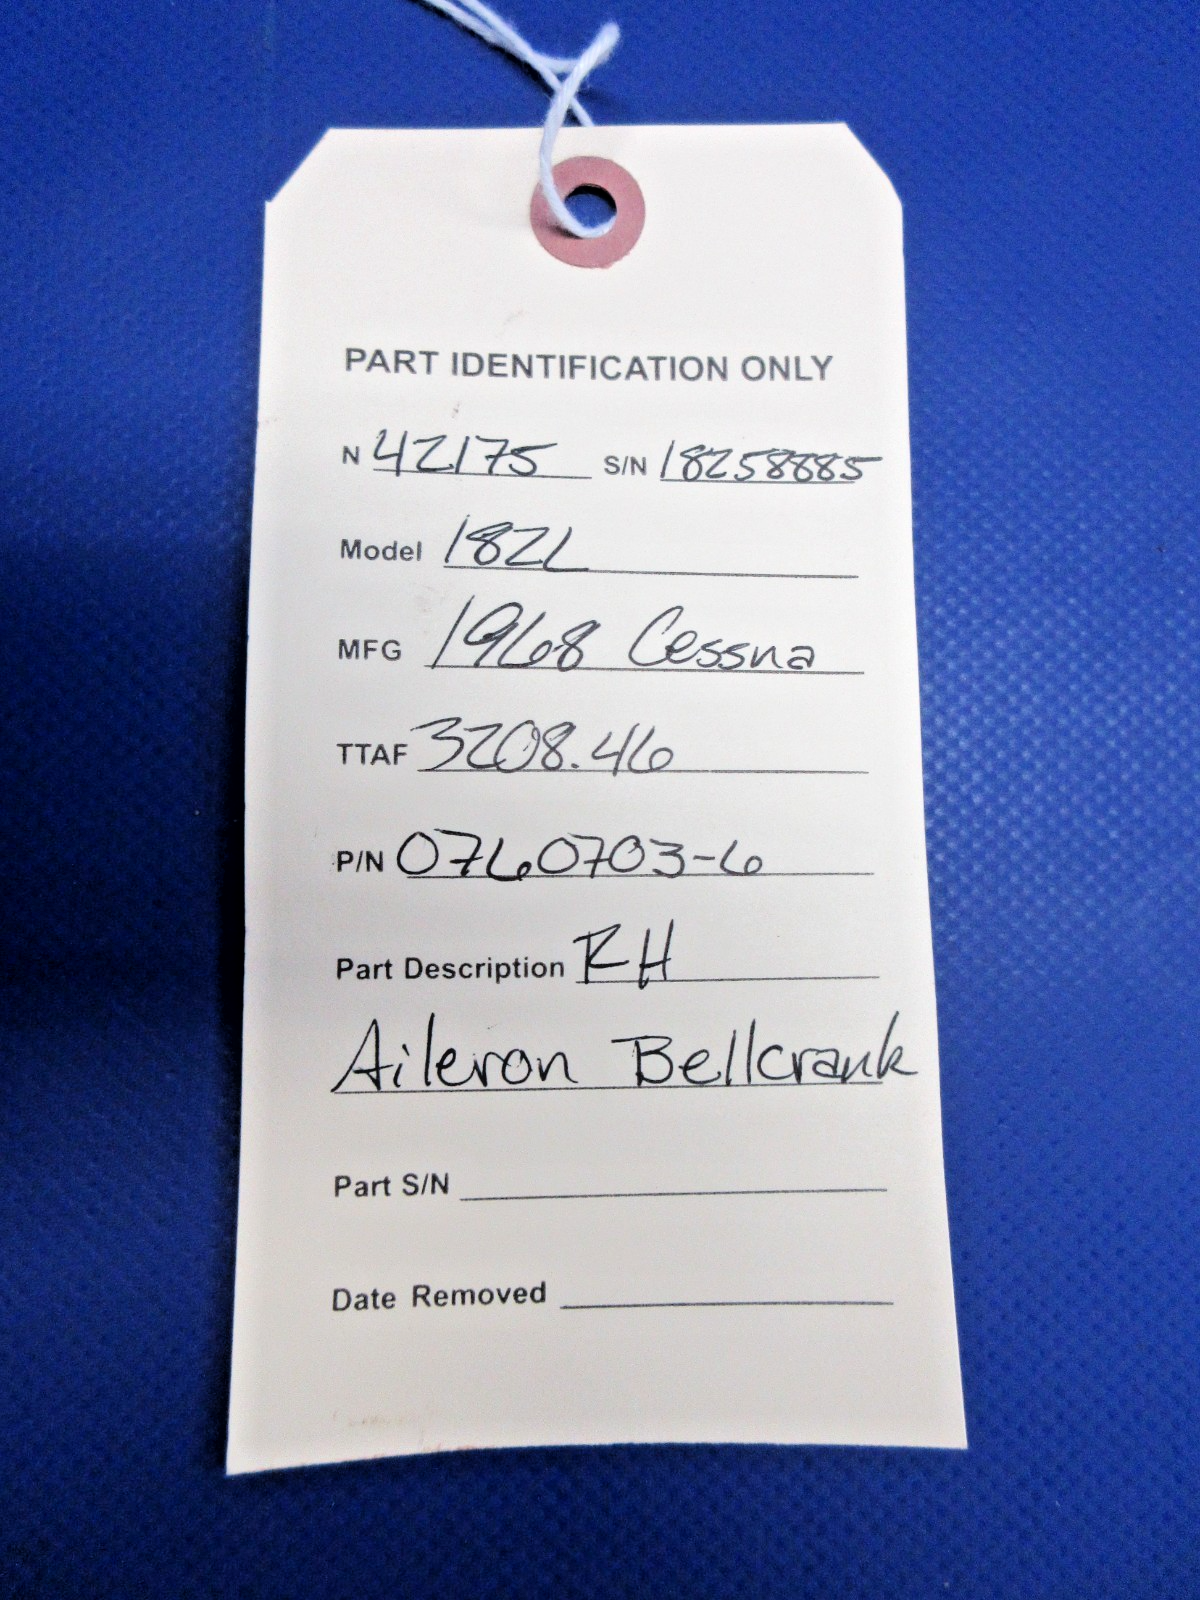 PART IDENTIFICATION ONLY
N 42175 S/N 18258885
Model 182L
MFG 1968 Cessna
TTAF 3208.46
P/N 0760703-6
Part Description RH
Aileron Bellcrank
Part S/N
Date Removed